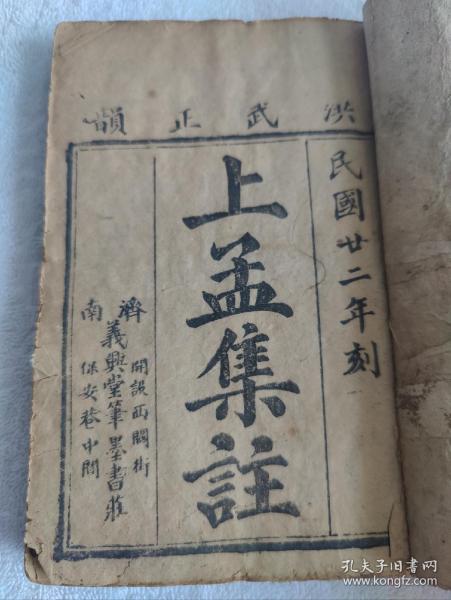 洪武正韻
民國廿二年刻
上孟集註
濟南
開設西關街
義興堂筆墨書莊
保安巷中間
孔夫子旧书网
www.kongfz.com